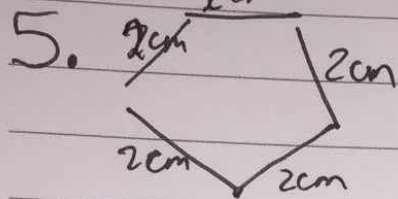 5. 2cm
2cm
2cm
2cm